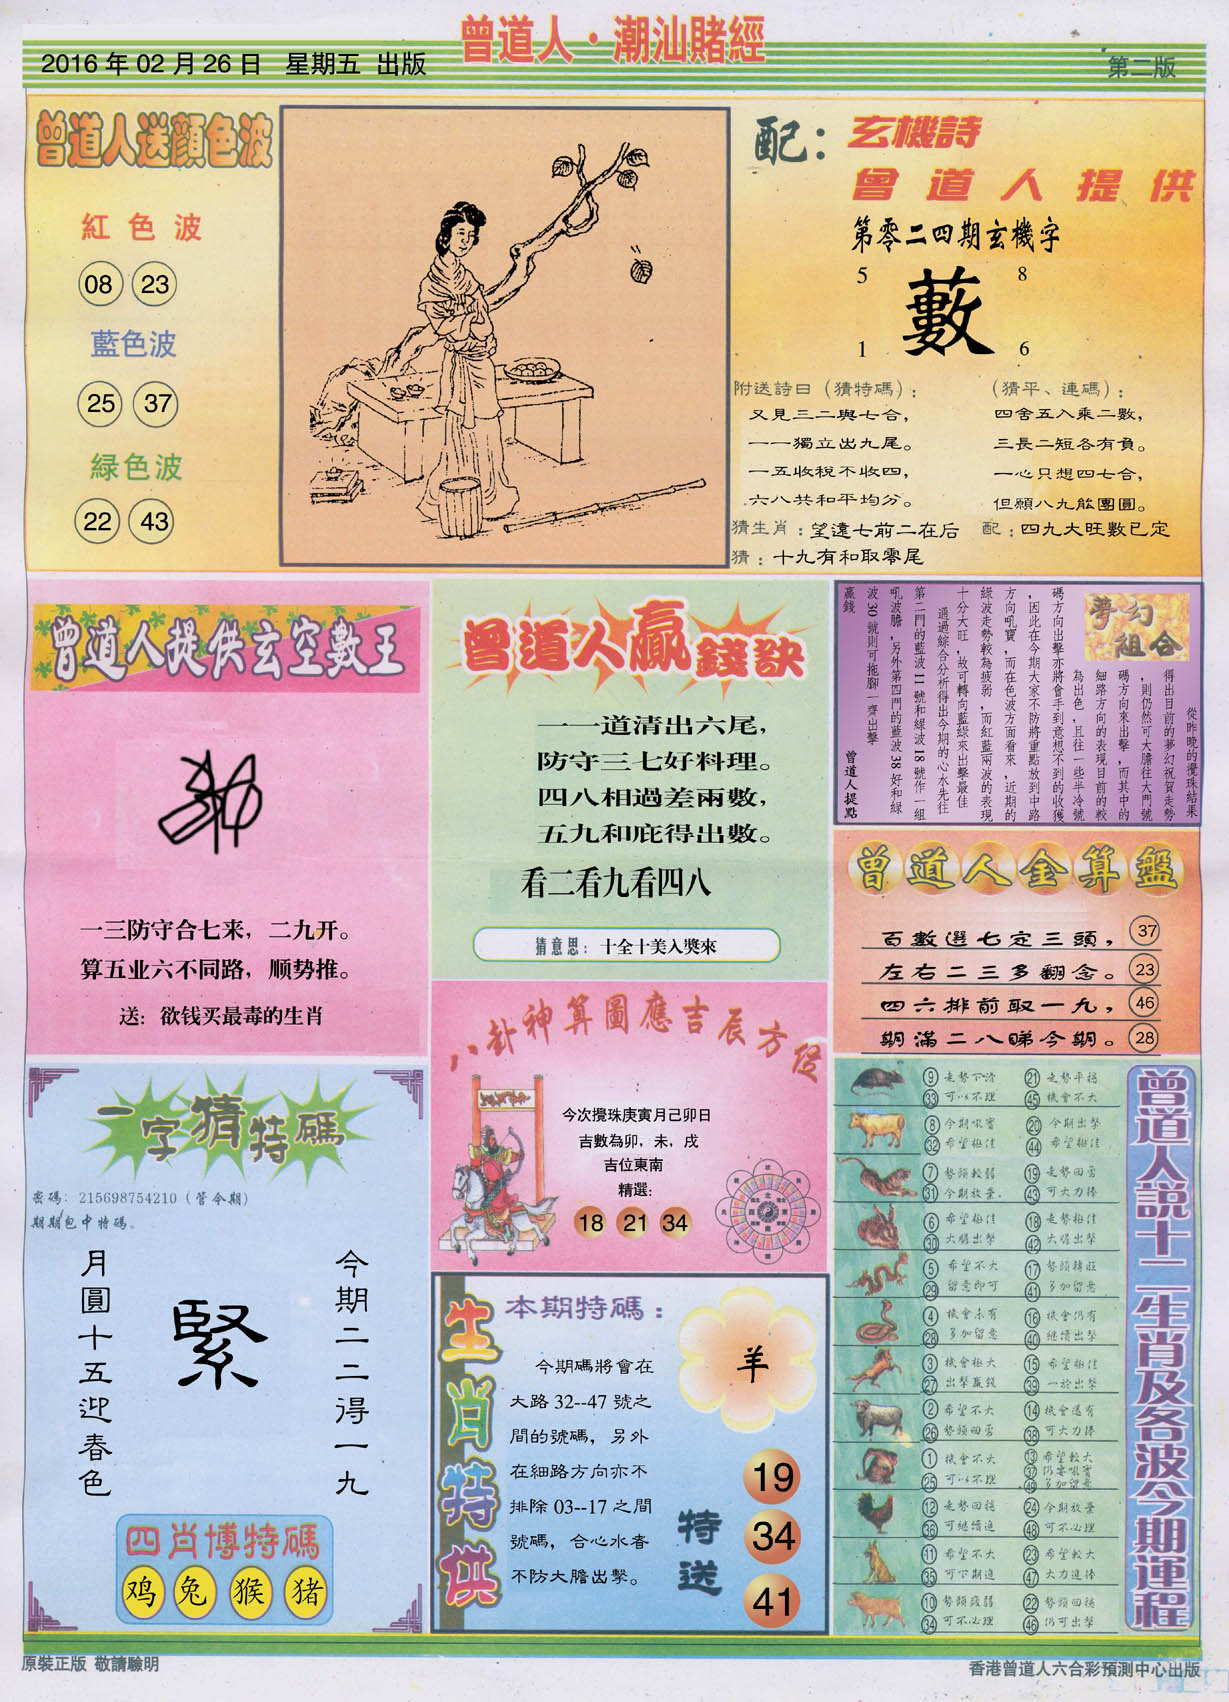 曾道人·潮汕賭經
2016年02月26日 星期五 出版
第二版
曾道人送顏色波
紅色波
08 23
藍色波
25 37
緑色波
22 43
配：玄機詩
曾道人提供
第零二四期玄機字
5 8
藪
1 6
附送詩曰（猜特碼）：
又見三二與七合，
一一獨立出九尾。
一五收稅不收四，
六八共和平均分。
（猜平、連碼）：
四舍五入乘二數，
三長二短各有負。
一心只想四七合，
但願八九能團圓。
猜生肖：望遠七前二在后
配：四九大旺數已定
猜：十九有和取零尾
曾道人提供玄空數王
一三防守合七来，二九开。
算五业六不同路，顺势推。
送：欲钱买最毒的生肖
曾道人贏錢訣
一一道清出六尾，
防守三七好料理。
四八相過差兩數，
五九和庇得出數。
看二看九看四八
猜意思：十全十美入獎來
夢幻組合
從昨晚的攪珠結果
得出目前的夢幻祝賀走勢
，則仍然可大膽往大門號
碼方向來出擊，而其中的
細路方向的表現目前的較
為出色，且往一些半冷號
碼方向出擊亦將會手到意想不到的收獲
，因此在今期大家不防將重點放到中路
方向吼寶，而在色波方面看來，近期的
綠波走勢較為疲弱，而紅藍兩波的表現
十分大旺，故可轉向藍綠來出擊最佳
通過綜合分析得出今期的心水先往
第二門的藍波11號和綠波18號作一組
吼波膽，另外第四門的藍波38好和綠
波30號則可拖腳一齊出擊
贏錢
曾道人提點
曾道人金算盤
百數選七定三頭， 37
左右二三多翻念。 23
四六排前取一九， 46
期滿二八睇今期。 28
八卦神算圖應吉辰方位
今次攪珠庚寅月己卯日
吉數為卯，未，戌
吉位東南
精選：
18 21 34
一字猜特碼
密碼：215698754210（管今期）
期期包中特碼。
今期二二得一九
緊
月圓十五迎春色
四肖博特碼
鸡 兔 猴 猪
生肖特供
本期特碼：
羊
今期碼將會在
大路32--47號之
間的號碼，另外
在細路方向亦不
排除03--17之間
號碼，合心水者
不防大膽出擊。
特送
19
34
41
曾道人說十二生肖及各波今期運程
⑨ 走勢下滑 ㉑ 走勢平穩
㉝ 可以不理 ㊺ 機會不大
⑧ 今期吼實 ⑳ 今期出擊
㉜ 希望極佳 ㊹ 希望極佳
⑦ 勢頭較弱 ⑲ 走勢回勇
㉛ 今期放棄 ㊸ 可大力捧
⑥ 希望極佳 ⑱ 走勢極佳
㉚ 大膽出擊 ㊷ 大膽出擊
⑤ 希望不大 ⑰ 勢頭轉旺
㉙ 留意即可 ㊶ 多加留意
④ 機會未有 ⑯ 機會仍有
㉘ 多加留意 ㊵ 繼續出擊
③ 機會極大 ⑮ 希望極佳
㉗ 出擊贏錢 ㊴ 一於出擊
② 希望不大 ⑭ 機會還有
㉖ 勢頭回勇 ㊳ 可大力捧
① 機會不大 ⑬ 希望較大
㉕ 可以不理 ㊲ 仍要吼實
㊾ 多加留意
⑫ 走勢回穩 ㉔ 今期放棄
㊱ 可繼續追 ㊽ 可不必理
⑪ 希望不大 ㉓ 希望較大
㉟ 可下期追 ㊼ 大力追捧
⑩ 勢頭疲弱 ㉒ 勢頭回穩
㉞ 可不必理 ㊻ 仍可出擊
原裝正版 敬請驗明
香港曾道人六合彩預測中心出版